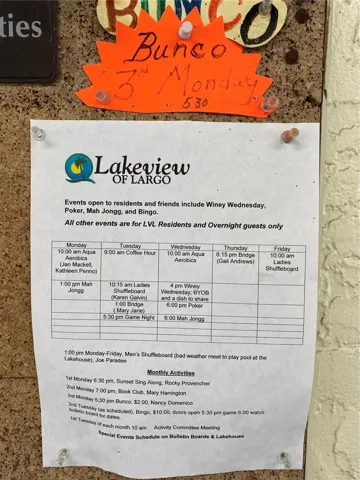 ties
BUNCO
Bunco
3rd Monday
530
Lakeview
OF LARGO
Events open to residents and friends include Winey Wednesday,
Poker, Mah Jongg, and Bingo.
All other events are for LVL Residents and Overnight guests only
Monday Tuesday Wednesday Thursday Friday
10:00 am Aqua 9:00 am Coffee Hour 10:00 am Aqua 6:15 pm Bridge 10:00 am
Aerobics Aerobics (Gail Andrews) Ladies
(Jan Mackell, Shuffleboard
Kathleen Penno)
1:00 pm Mah 10:15 am Ladies 4 pm Winey
Jongg Shuffleboard Wednesday; BYOB
(Karen Galvin) and a dish to share
1:00 Bridge 6:00 pm Poker
( Mary Jane)
5:30 pm Game Night 6:00 Mah Jongg
1:00 pm Monday-Friday, Men's Shuffleboard (bad weather meet to play pool at the
Lakehouse), Joe Paradee
Monthly Activities
1st Monday 6:30 pm, Sunset Sing Along, Rocky Provencher
2nd Monday 7:00 pm, Book Club, Mary Harrington
3rd Monday 5:30 pm Bunco, $2.00, Nancy Domenico
2nd Tuesday (as scheduled), Bingo, $10.00, doors open 5:30 pm game 6:00 watch
bulletin board for dates.
1st Tuesday of each month 10 am Activity Committee Meeting
Special Events Schedule on Bulletin Boards & Lakehouse